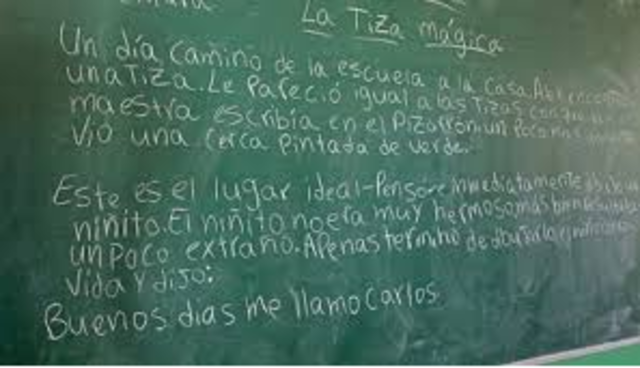 La Tiza mágica
Un día camino de la escuela a la casa.
una Tiza. Le Pareció igual a las Tizas con
maestra escribia en el Pizarrón. un Poco mas
Vio una Cerca Pintada de verde.
Este es el lugar ideal-Pensó. e inmediatamente
niñito. El niñito no era muy hermoso. más bien
un Poco extraño. Apenas termino de
Vida y dijo:
Buenos dias me llamo Carlos